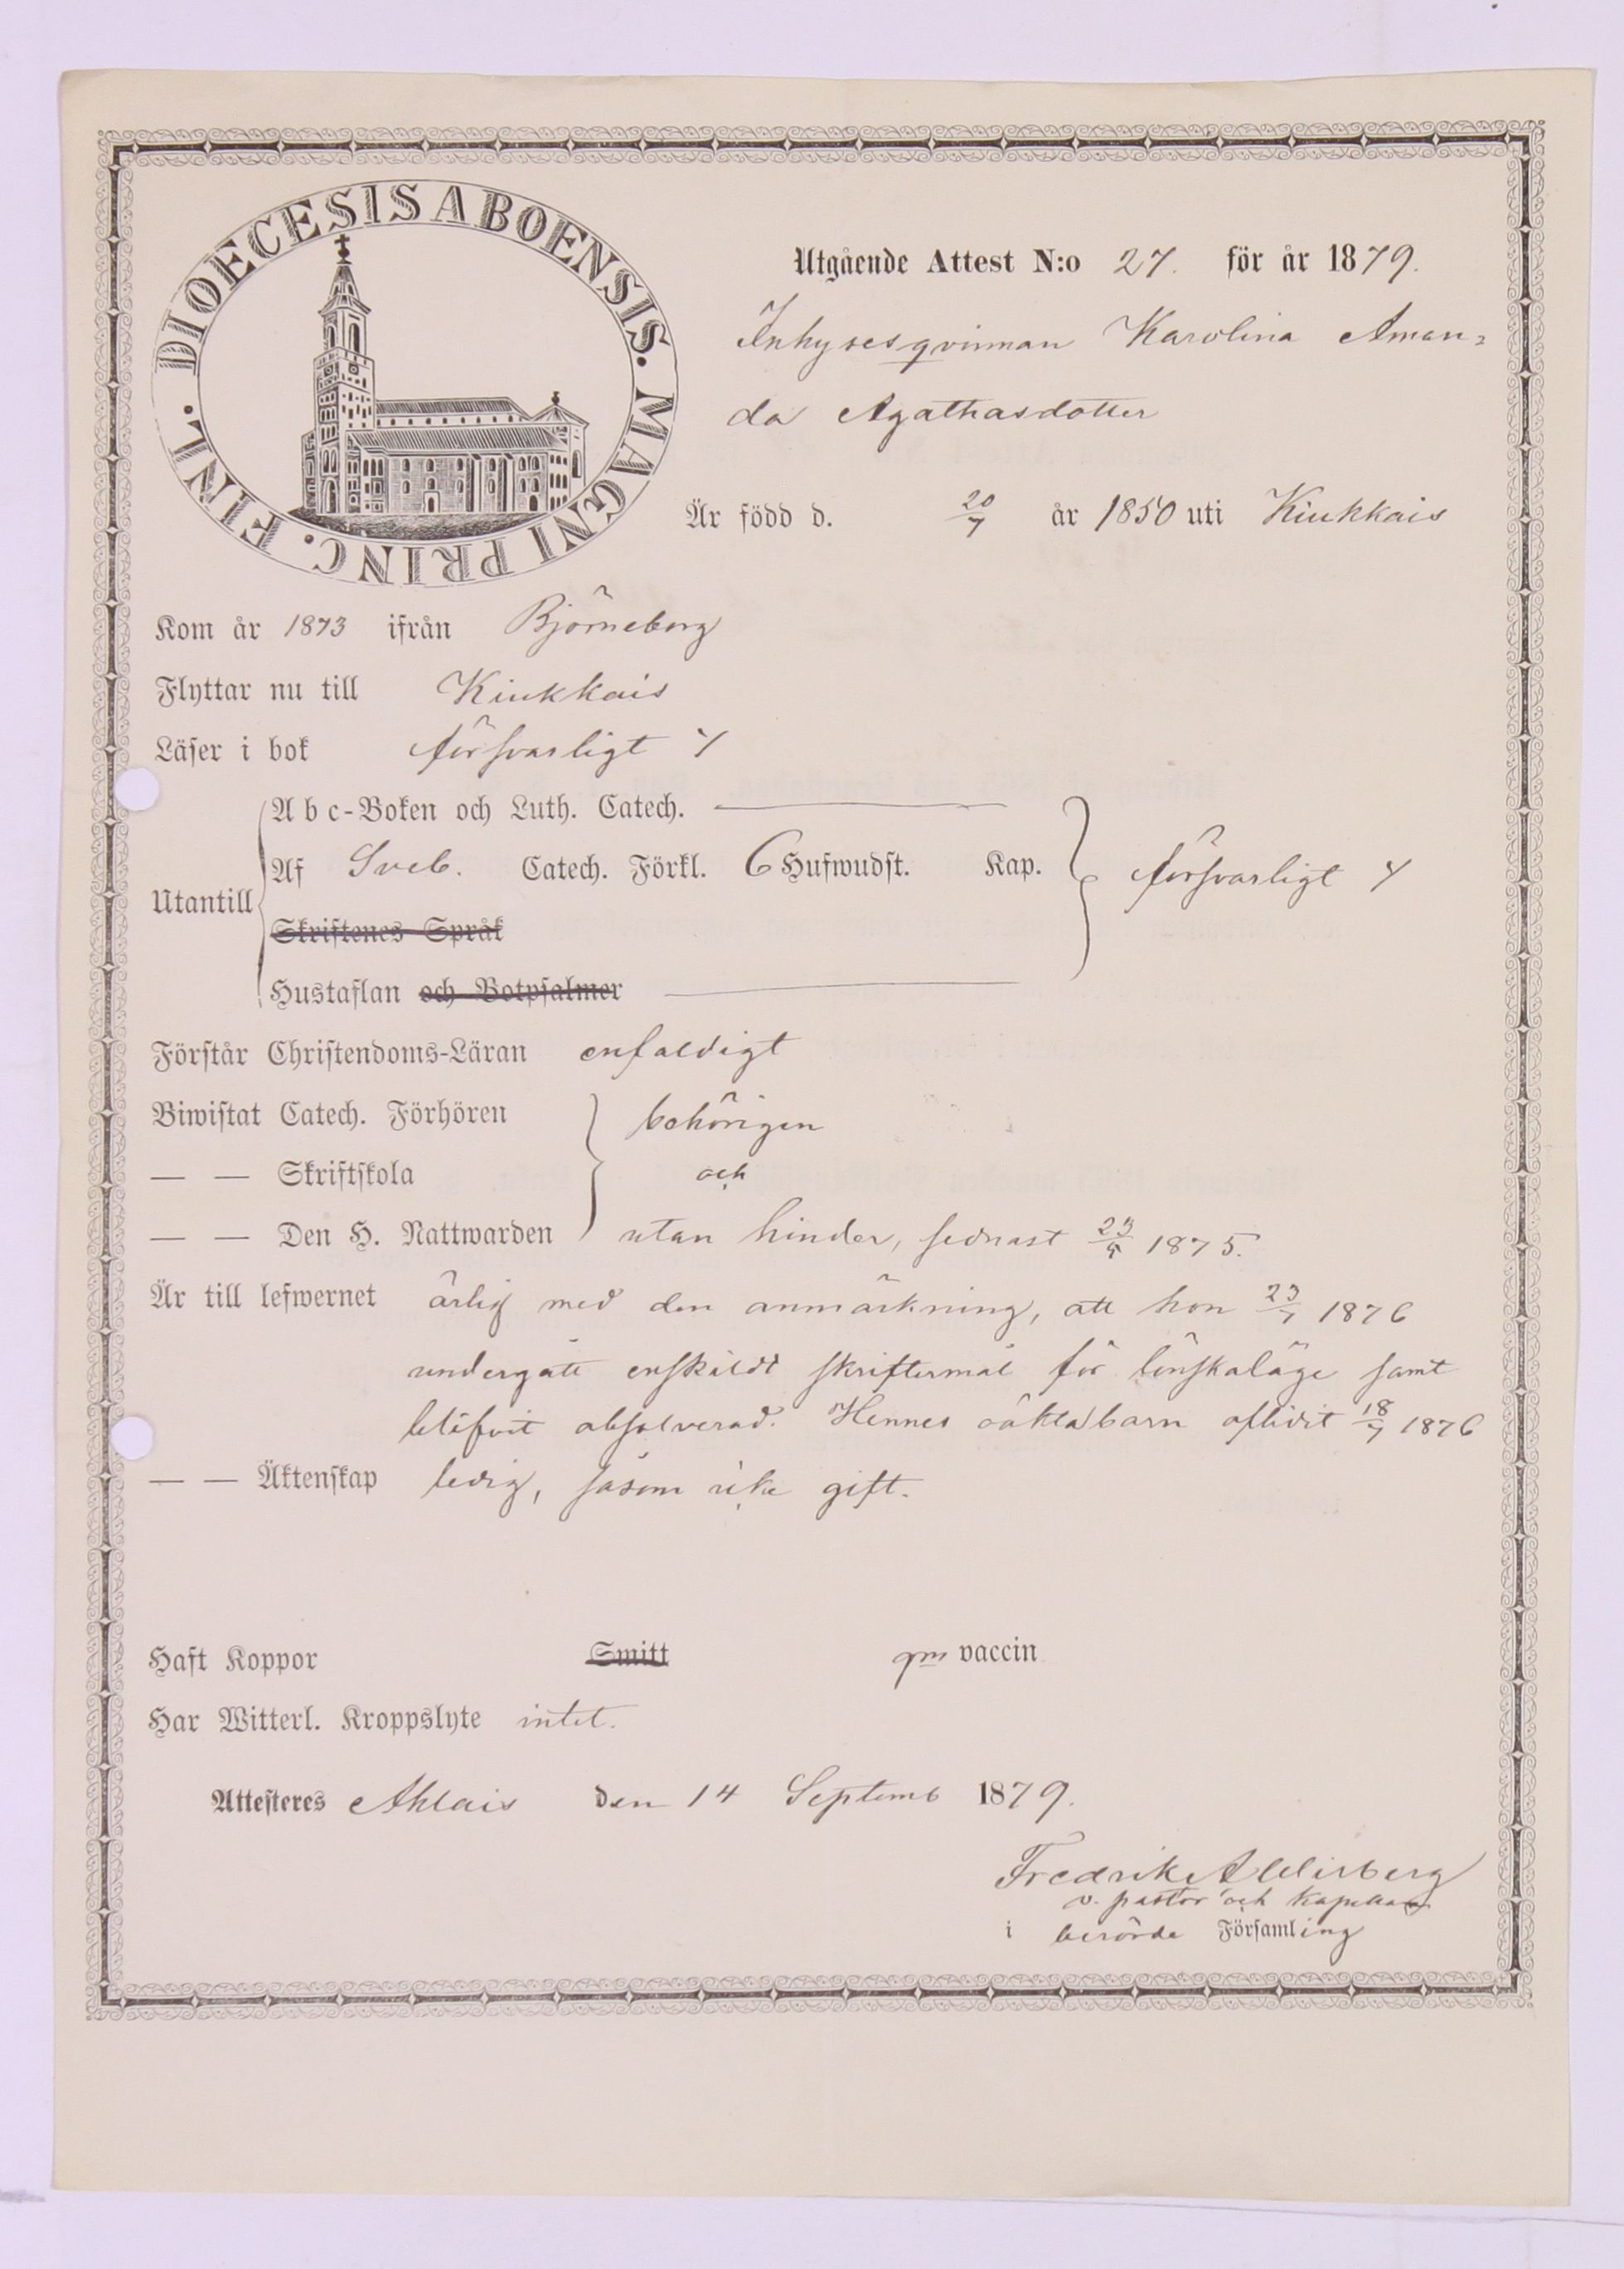 DIOECESIS ABOENSIS. MAGNI PRINC. FINL.
Utgående Attest N:o 27. för år 1879.
Inhysesqvinnan Karolina Aman=
da Agathasdotter
Är född d. 20/7 år 1850 uti Kiukkais
Kom år 1873 ifrån Björneborg
Flyttar nu till Kiukkais
Läser i bok försvarligt
A b c-Boken och Luth. Catech.
Utantill Af Sveb. Catech. Förkl. 6 Hufwudst. Kap. försvarligt
Skriftenes Språk
Hustaflan och Botpsalmer
Förstår Christendoms-Läran enfaldigt
Biwistat Catech. Förhören behörigen
— — Skriftskola och
— — Den H. Nattwarden utan hinder, sednast 1875.
Är till lefwernet ärlig med den anmärkning, att hon 23/7 1876
undergått enskildt skriftermål för lönskaläge samt
blifvit absolverad. Hennes oäkta barn aflidit 18/7 1876
— — Äktenskap ledig, såsom icke gift.
Haft Koppor Smitt gm vaccin
Har Witterl. Kroppslyte intet.
Attesteres Ahlais den 14 Septemb 1879.
Fredrik
v. pastor och kapellan
i berörde Församling